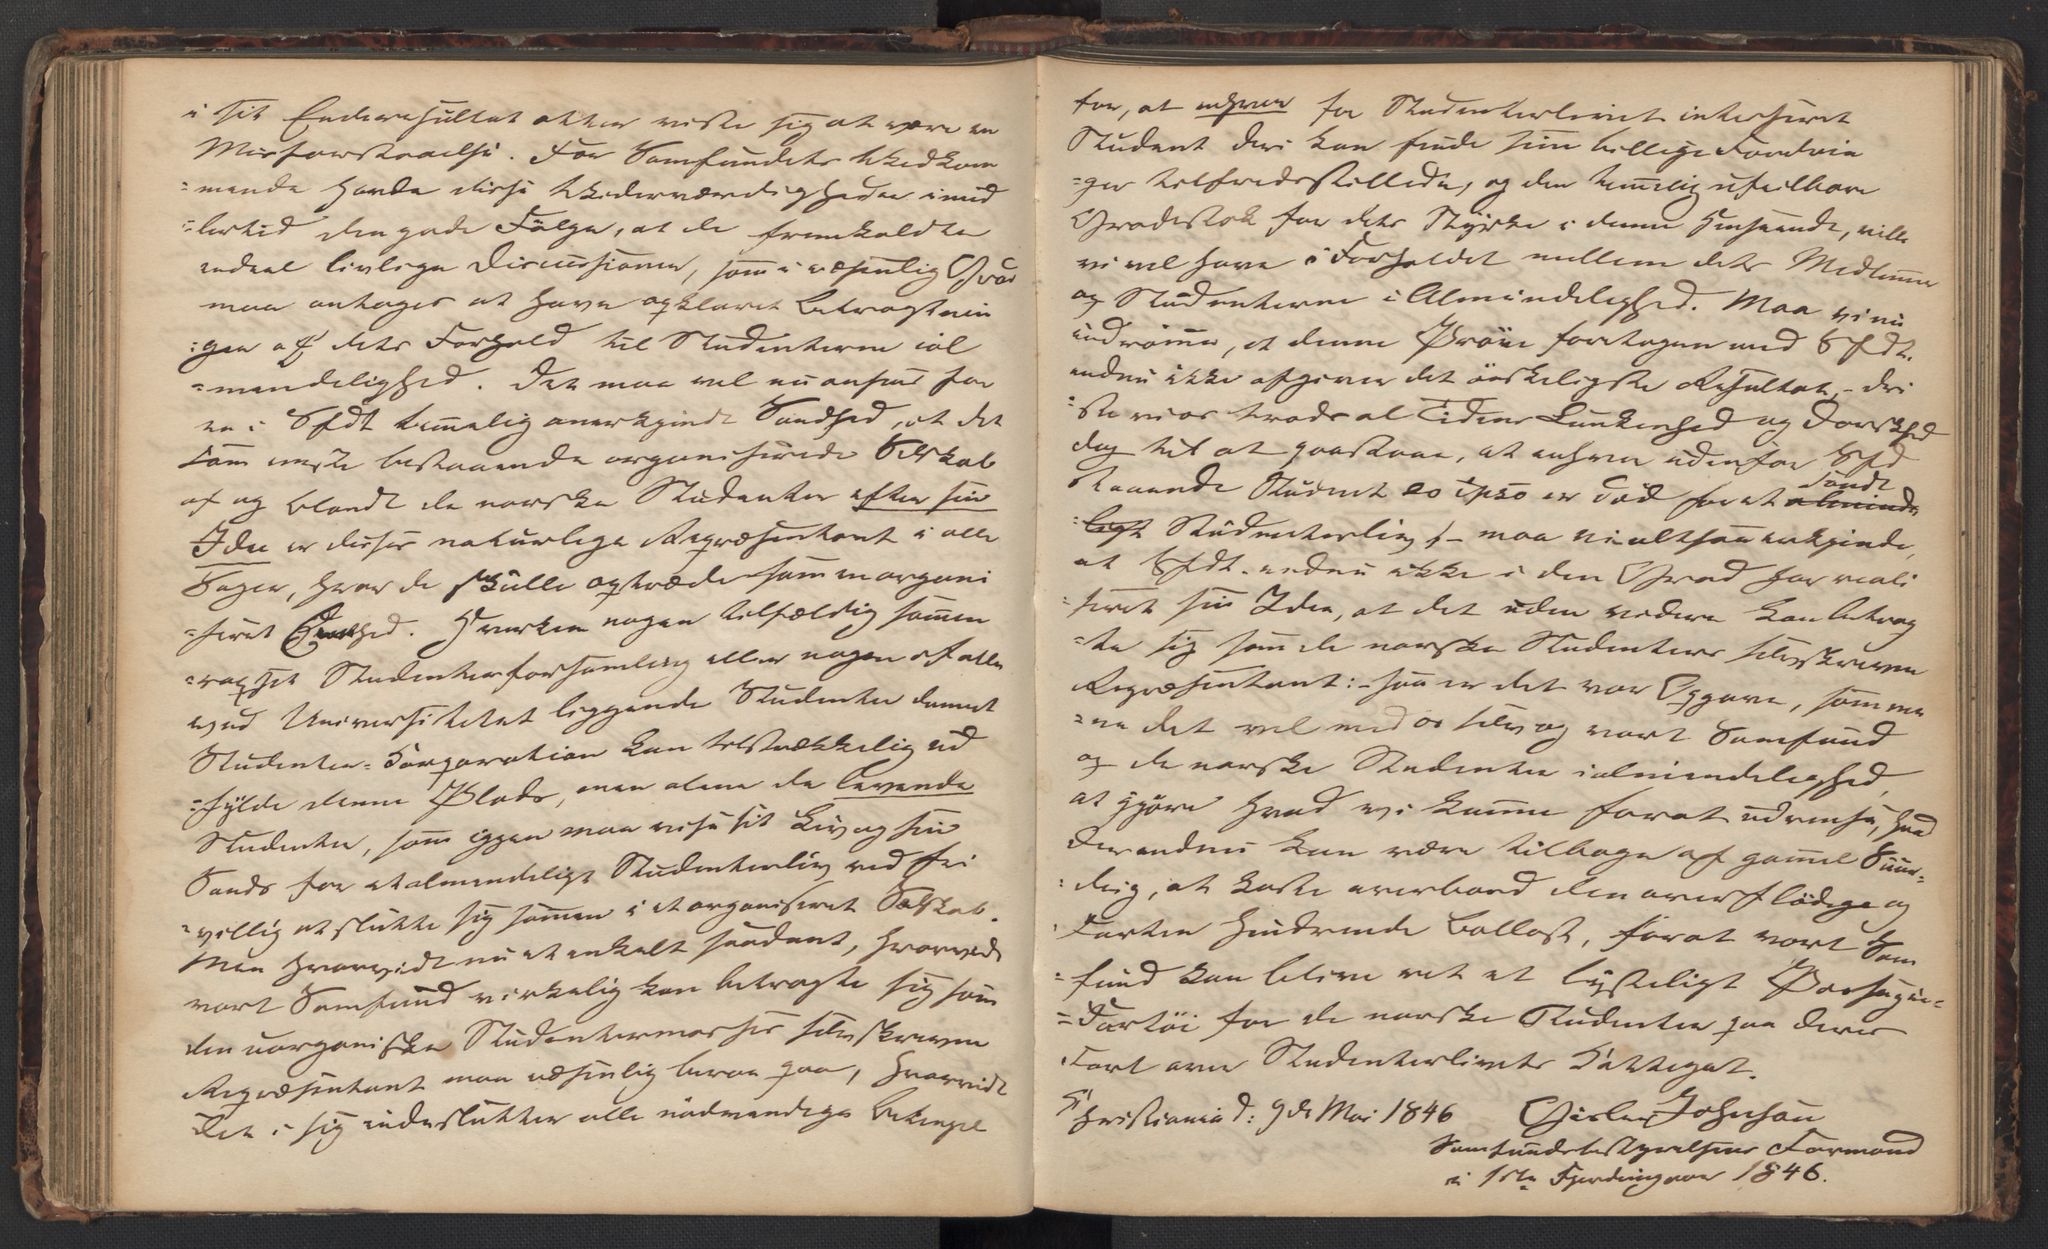 i sit Enderesultat atter viste sig at være en
Misforstaaelse. For Samfundets Vedkom
=mende havde disse Viderværdigheder imid
=lertid den gode Følge, at de fremkaldte
endeel livlige Discussioner, som i væsentlig Grad
maa antages at have opklaret Betragtnin
=gen af dets Forhold til Studenterne i al
=mindelighed. Det maa vel nu ansees for
en i Sfdt temmelig anerkjendt Sandhed, at det
som eneste bestaaende organiserede Selskab
af og blandt de norske Studenter efter sin
Idee er disses naturlige Repræsentant i alle
Sager, hvor de skulle optræde som en organi
=seret Eenhed. Hverken nogen tilfældig sammen
=raabt Studenterforsamling eller nogen af alle
ved Universitetet liggende Studenter dannet
Studenter=Corporation kan tilstrækkelig ud
=fylde denne Plads, men alene de levende
Studenter, som igjen maa vise sit Liv og sin
Sands for et almindeligt Studenterliv ved fri
=villig at slutte sig sammen i et organiseret Selskab.
Men hvorvidt nu et enkelt saadant, hvorvidt
vort Samfund virkelig kan betragte sig som
den uorganiske Studentermasses selvskrevne
Repræsentant maa væsentlig beroe paa, hvorvidt
det i sig indeslutter alle nødvendige Betingel
for, at enhver for Studenterlivet interesseret
Student deri kan finde sine billige Fordrin
=ger tilfredsstillede, og den temmelig ufeilbare
Gradestok for dets Styrke i denne Henseende, ville
vi vel have i Forholdet mellem dets Medlemmer
og Studenterne i Almindelighed. Maa vi nu
indrømme, at denne Prøve foretagen med Sfdt.
endnu ikke afgiver det ønskeligste Resultat, – dri
=ste vi os trods al Tidens Lunkenhed og Dorskhed
dog til at paastaae, at enhver udenfor Sfd
staaende Student eo ipso er død for et sandt alminde
=ligt Studenterliv, – maa vi altsaa erkjende,
at Sfdt. endnu ikke i den Grad har reali
=seret sin Idee, at det uden videre kan betrag
=te sig som de norske Studenters selvskrevne
Repræsentant: – saa er det vor Opgave, som me
=ne det vel med os selv og vort Samfund
og de norske Studenter i almindelighed,
at gjøre hvad vi kunne for at udrense, hvad
der endnu kan være tilbage af gammel Suur=
=deig, at kaste overbord den overflødige og
Farten hindrende Ballast, for at vort Sam
=fund kan blive ret et lysteligt Passageer=
=Fartøi for de norske Studenter paa deres
Fart over Studenterlivets Kattegat.
Christiania d: 9de Mai 1846 Gisle Johnson
Samfundsbestyrelsens Formand
i 1ste Fjerdingaar 1846.